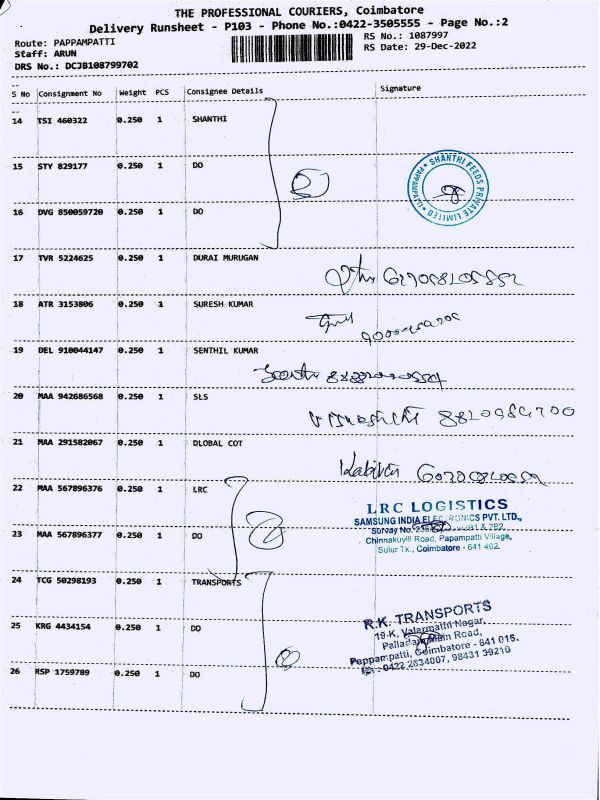 THE PROFESSIONAL COURIERS, Coimbatore
Delivery Runsheet - P103 - Phone No.:0422-3505555 - Page No.:2
Route: PAPPAMPATTI
RS No.: 1087997
Staff: ARUN
RS Date: 29-Dec-2022
DRS No.: DCJB108799702
S No Consignment No Weight PCS Consignee Details Signature
14 TSI 460322 0.250 1 SHANTHI
15 STY 829177 0.250 1 DO
SHANTHI FEEDS PRIVATE LIMITED
16 DVG 850059720 0.250 1 DO
17 TVR 5224625 0.250 1 DURAI MURUGAN
18 ATR 3153806 0.250 1 SURESH KUMAR
19 DEL 910044147 0.250 1 SENTHIL KUMAR
20 MAA 942686568 0.250 1 SLS
21 MAA 291582067 0.250 1 DLOBAL COT
22 MAA 567896376 0.250 1 LRC
LRC LOGISTICS
SAMSUNG INDIA ELECTRONICS PVT. LTD.,
Survey No.
23 MAA 567896377 0.250 1 DO
Chinnakuyili Road, Papampatti Village,
Sulur Tk., Coimbatore - 641 402.
24 TCG 50298193 0.250 1 TRANSPORTS
R.K. TRANSPORTS
19-K, Valarmathi Nagar,
25 KRG 4434154 0.250 1 DO
Road,
Pappampatti, Coimbatore - 641 016.
0422 2634007, 98431 39210
26 RSP 1759789 0.250 1 DO